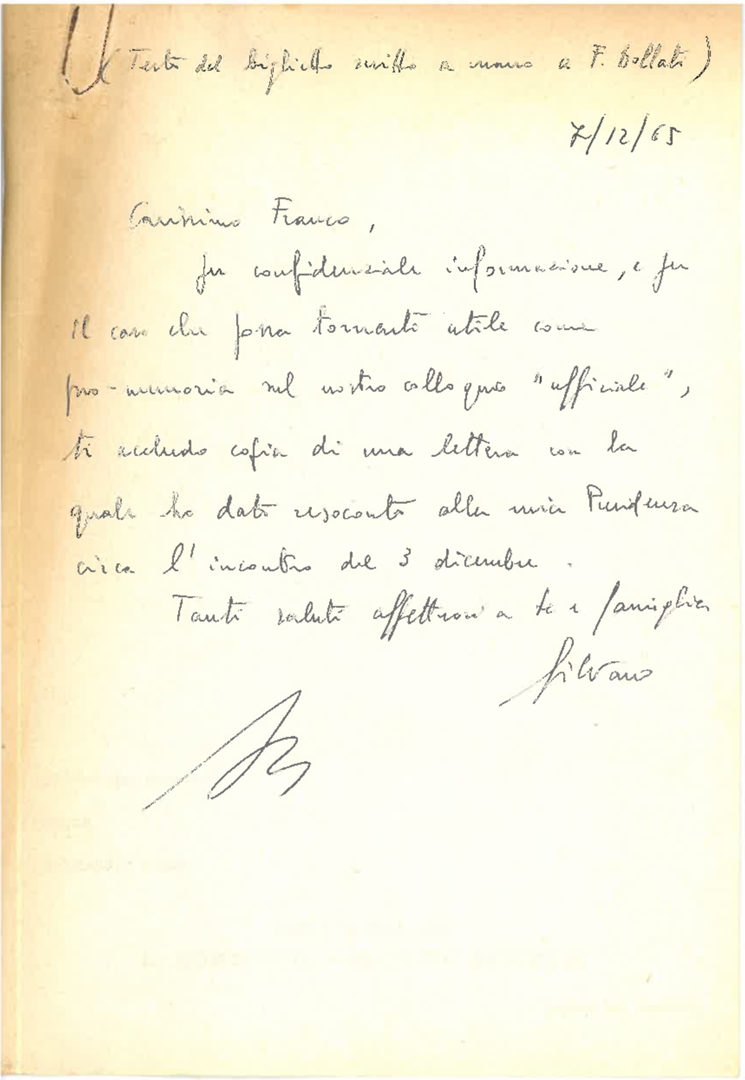 (Testo del biglietto scritto a mano a F. Bollati)
7/12/65
Carissimo Franco,
per confidenziale informazione, e per
il caso che possa tornarti utile come
pro-memoria nel nostro colloquio "ufficiale",
ti accludo copia di una lettera con la
quale ho dato resoconto alla mia Presidenza
circa l'incontro del 3 dicembre.
Tanti saluti affettuosi a te e famiglia
Silvano